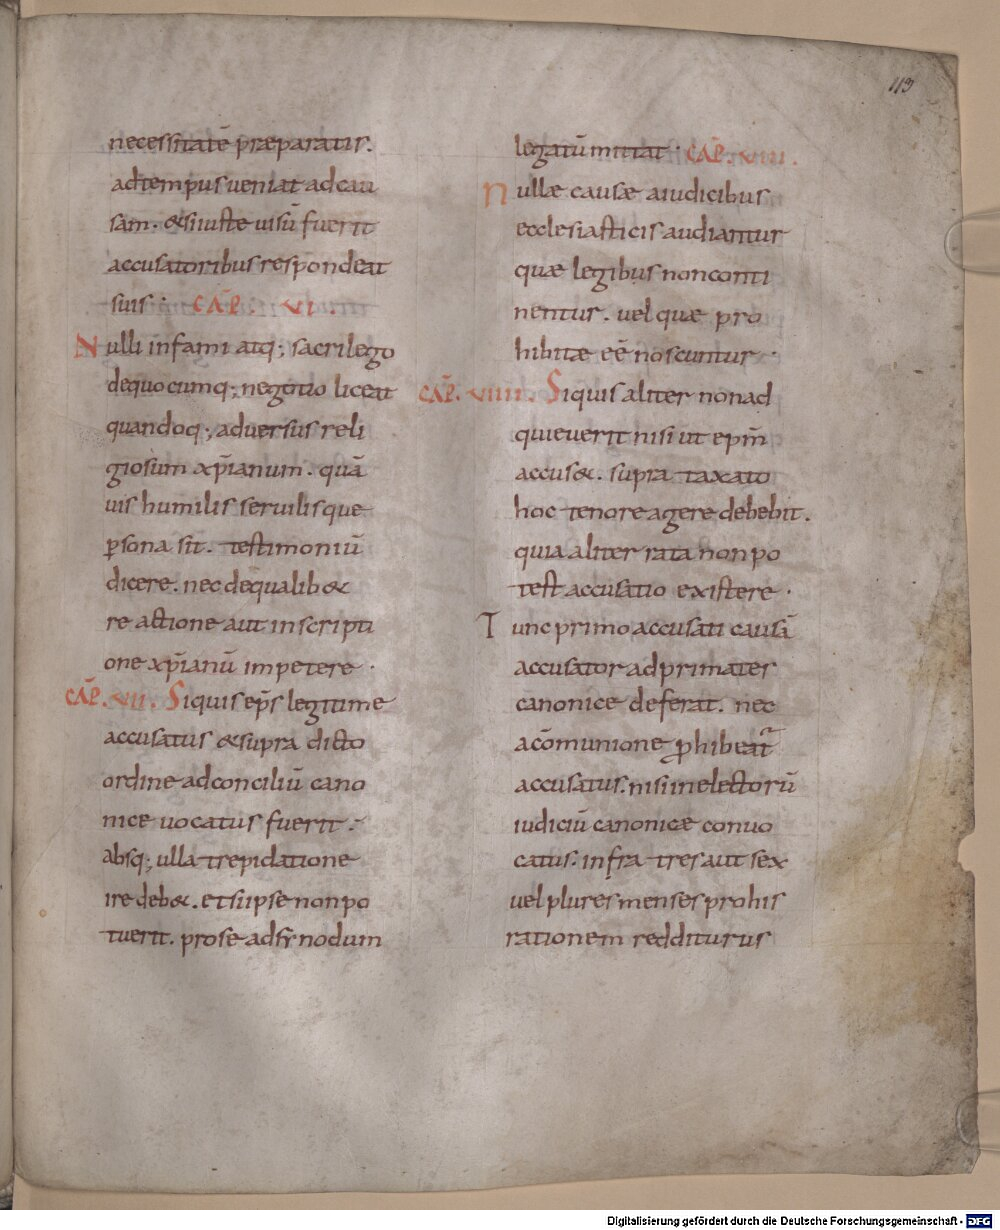 113
necessitatē præparatis.
adtempus veniat adcau
sam. & si iuste uisū fuerit
accusatoribus respondeat
suis. CAP̄. VI.
Nulli infami atq; sacrilego
dequocumq; negotio liceat
quandoq; adversus reli
giosum xp̄ianum. quā
uis humilis servilisque
ꝑsona sit. testimoniū
dicere. nec dequalib&
re actione aut inscripti
one xp̄ianū impetere.
CAP̄. VII. Siquis ep̄s legitime
accusatus & supra dicto
ordine adconciliū cano
nice uocatus fuerit.
absq; ulla trepidatione
ire deb&. et siipse nonpo
tuerit. prose adsynodum
legatū mittat. CAP̄. VIII.
Nullæ causæ aiudicibus
ecclesiasticis audiantur
quæ legibus nonconti
nentur. uel quæ pro
hibitæ eē noscuntur.
CAP̄. VIIII. Siquis aliter nonad
quieverit nisi ut ep̄m
accus&. supra taxato
hoc tenore agere debebit.
quia aliter rata nonpo
test accusatio existere.
Tunc primo accusati causā
accusator adprimates
canonice deferat. nec
acōmunione ꝓhibeat᷑
accusatus. nisi inelectorū
iudiciū canonicæ convo
catus. infra tres aut sex
uel plures menses prohis
rationem redditurus
Digitalisierung gefördert durch die Deutsche Forschungsgemeinschaft - DFG